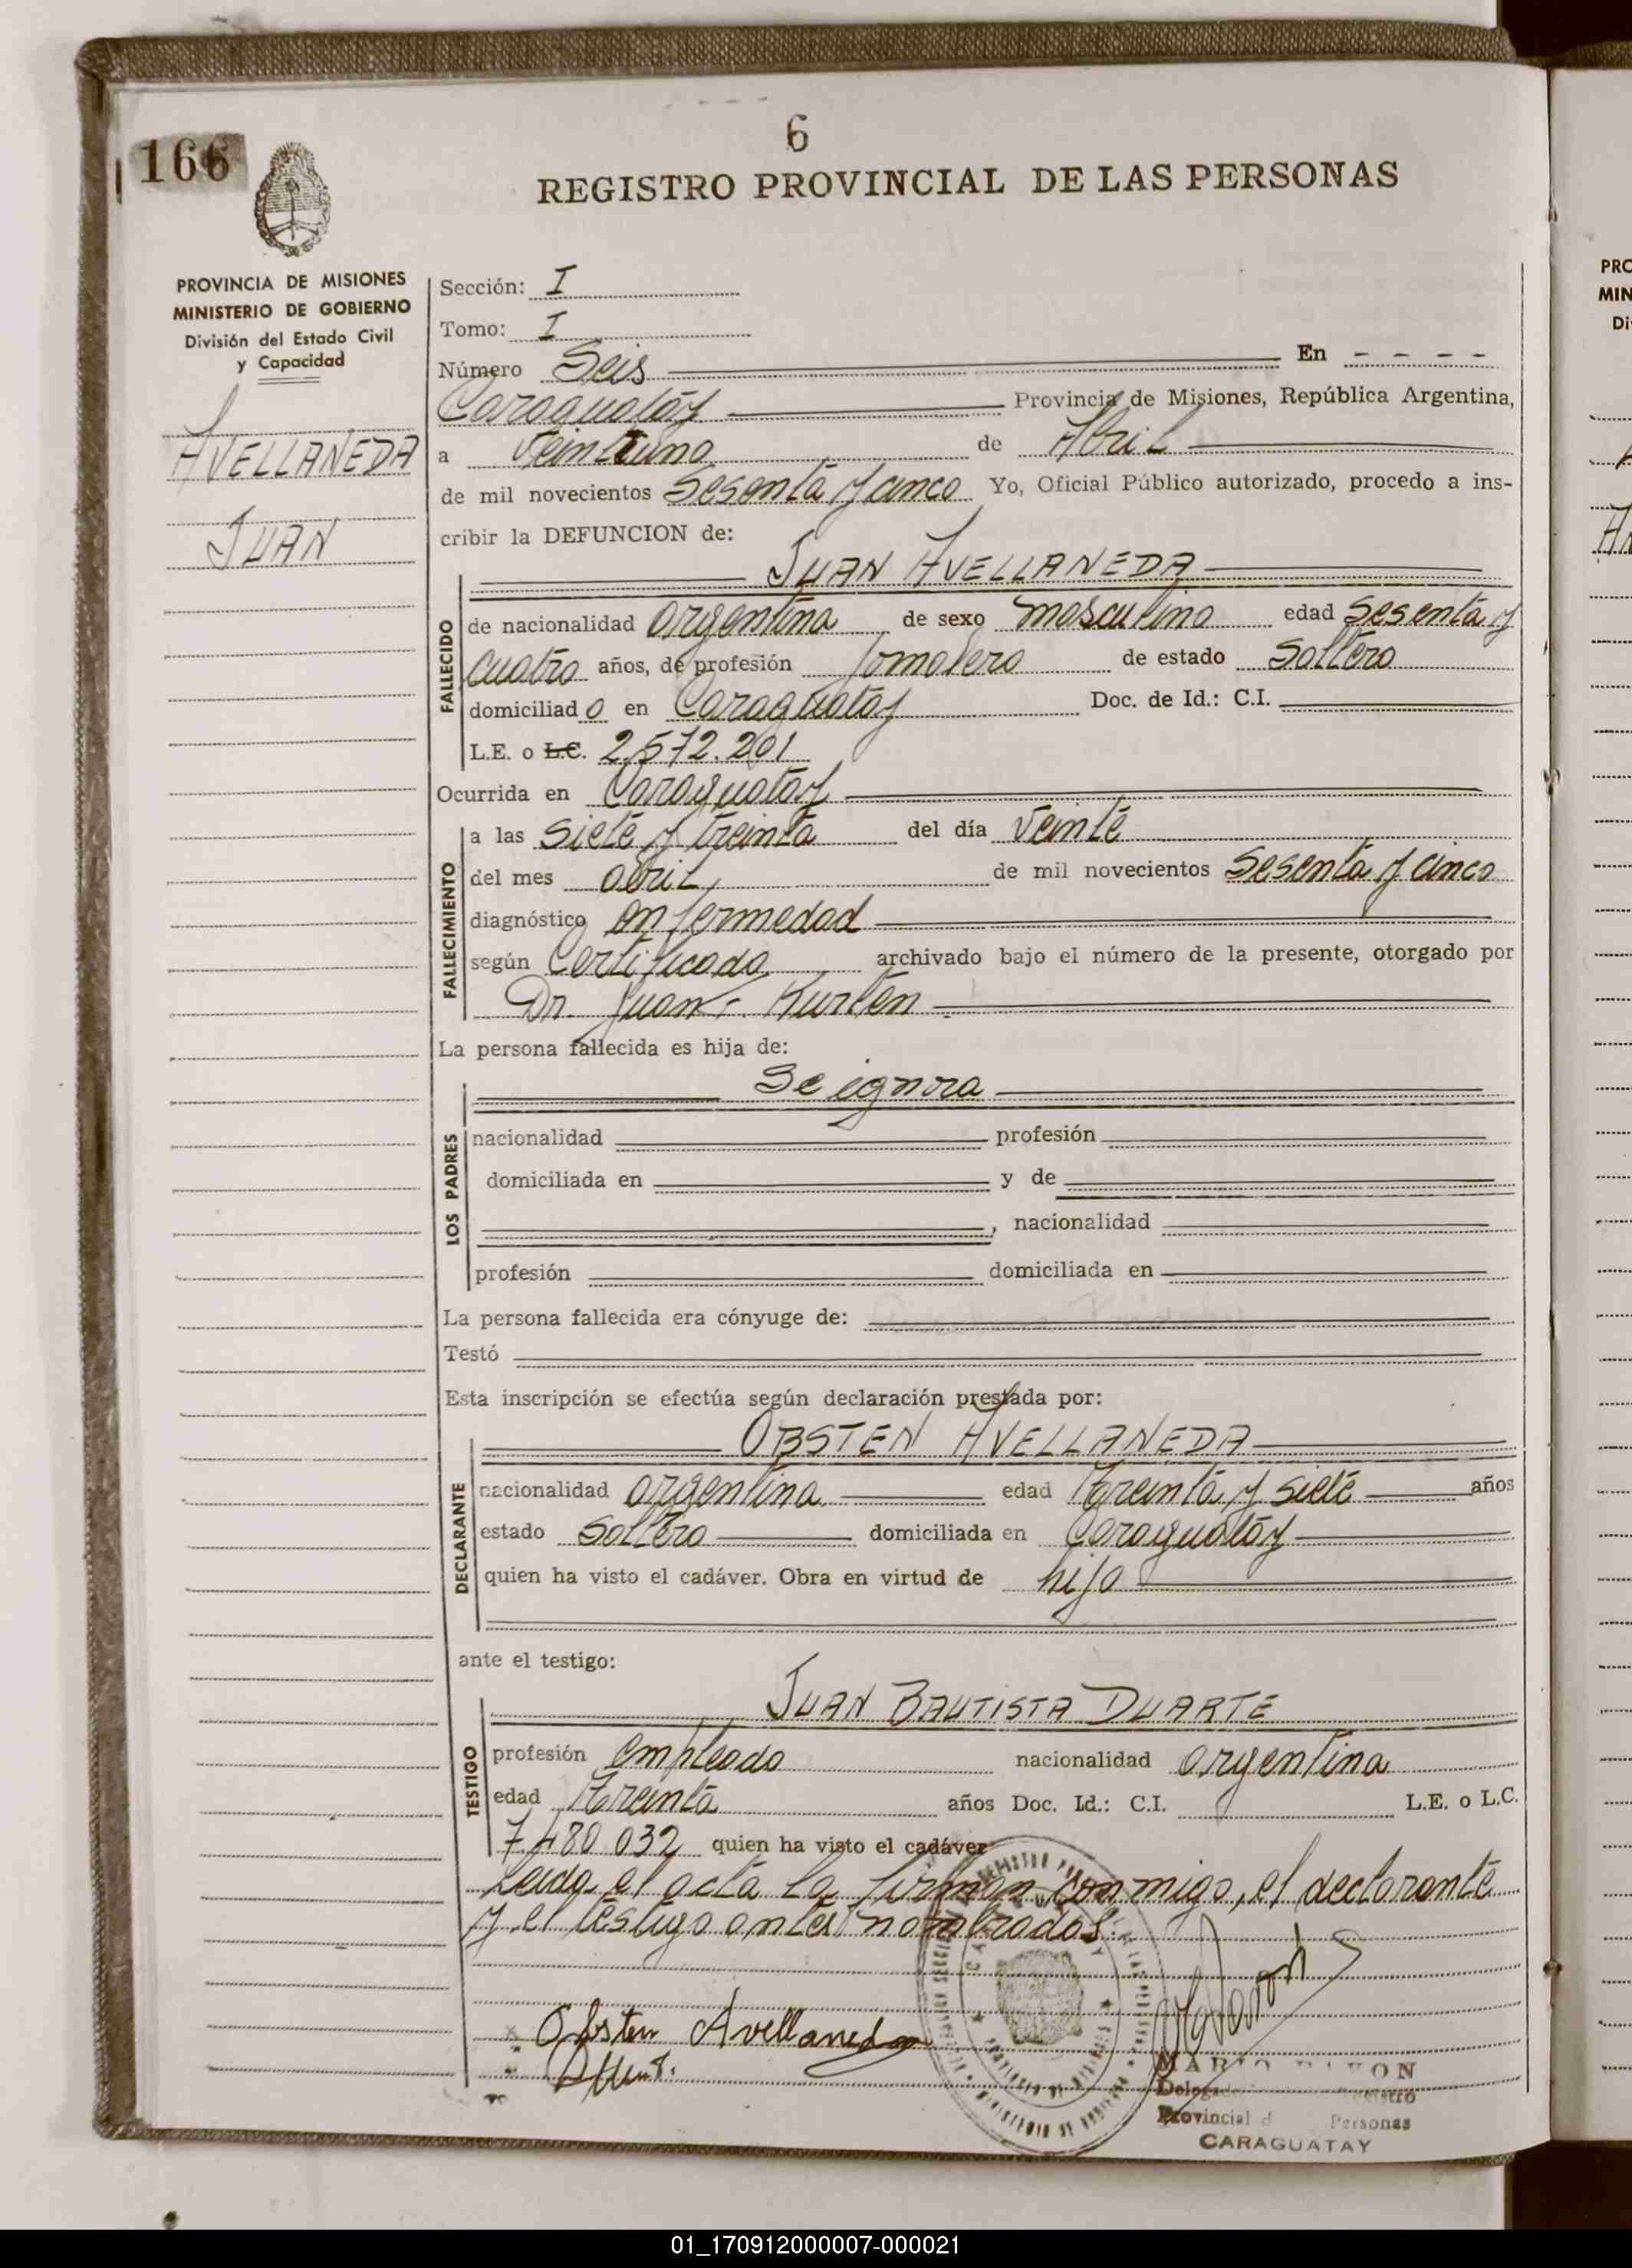 6
166
REGISTRO PROVINCIAL DE LAS PERSONAS
PROVINCIA DE MISIONES
MINISTERIO DE GOBIERNO
División del Estado Civil
y Capacidad
AVELLANEDA
JUAN
Sección: I
Tomo: I
Número Seis En - - - -
Caraguatay Provincia de Misiones, República Argentina,
a Veintiuno de Abril
de mil novecientos Sesenta y cinco Yo, Oficial Público autorizado, procedo a ins-
cribir la DEFUNCION de:
JUAN AVELLANEDA
FALLECIDO
de nacionalidad argentina de sexo masculino edad Sesenta y
cuatro años, de profesión Jornalero de estado Soltero
domiciliado en Caraguatay Doc. de Id.: C.I.
L.E. o L.C. 2.572.201
Ocurrida en Caraguatay
FALLECIMIENTO
a las siete y treinta del día Veinte
del mes abril, de mil novecientos Sesenta y cinco
diagnóstico enfermedad
según Certificado archivado bajo el número de la presente, otorgado por
Dr. Juan Kurten
La persona fallecida es hija de:
Se ignora
LOS PADRES
nacionalidad profesión
domiciliada en y de
, nacionalidad
profesión domiciliada en
La persona fallecida era cónyuge de:
Testó
Esta inscripción se efectúa según declaración prestada por:
OBSTEN AVELLANEDA
DECLARANTE
nacionalidad argentina edad Treinta y siete años
estado Soltero domiciliada en Caraguatay
quien ha visto el cadáver. Obra en virtud de hijo
ante el testigo:
JUAN BAUTISTA DUARTE
TESTIGO
profesión empleado nacionalidad argentina
edad Treinta años Doc. Id.: C.I. L.E. o L.C.
7480 032 quien ha visto el cadáver
Leida el acta la firman conmigo, el declarante
y el testigo antes nombrados.
Obsten Avellaneda
MARIO
Provincial d Personas
CARAGUATAY
PRO
MIN
Di
01_170912000007-000021